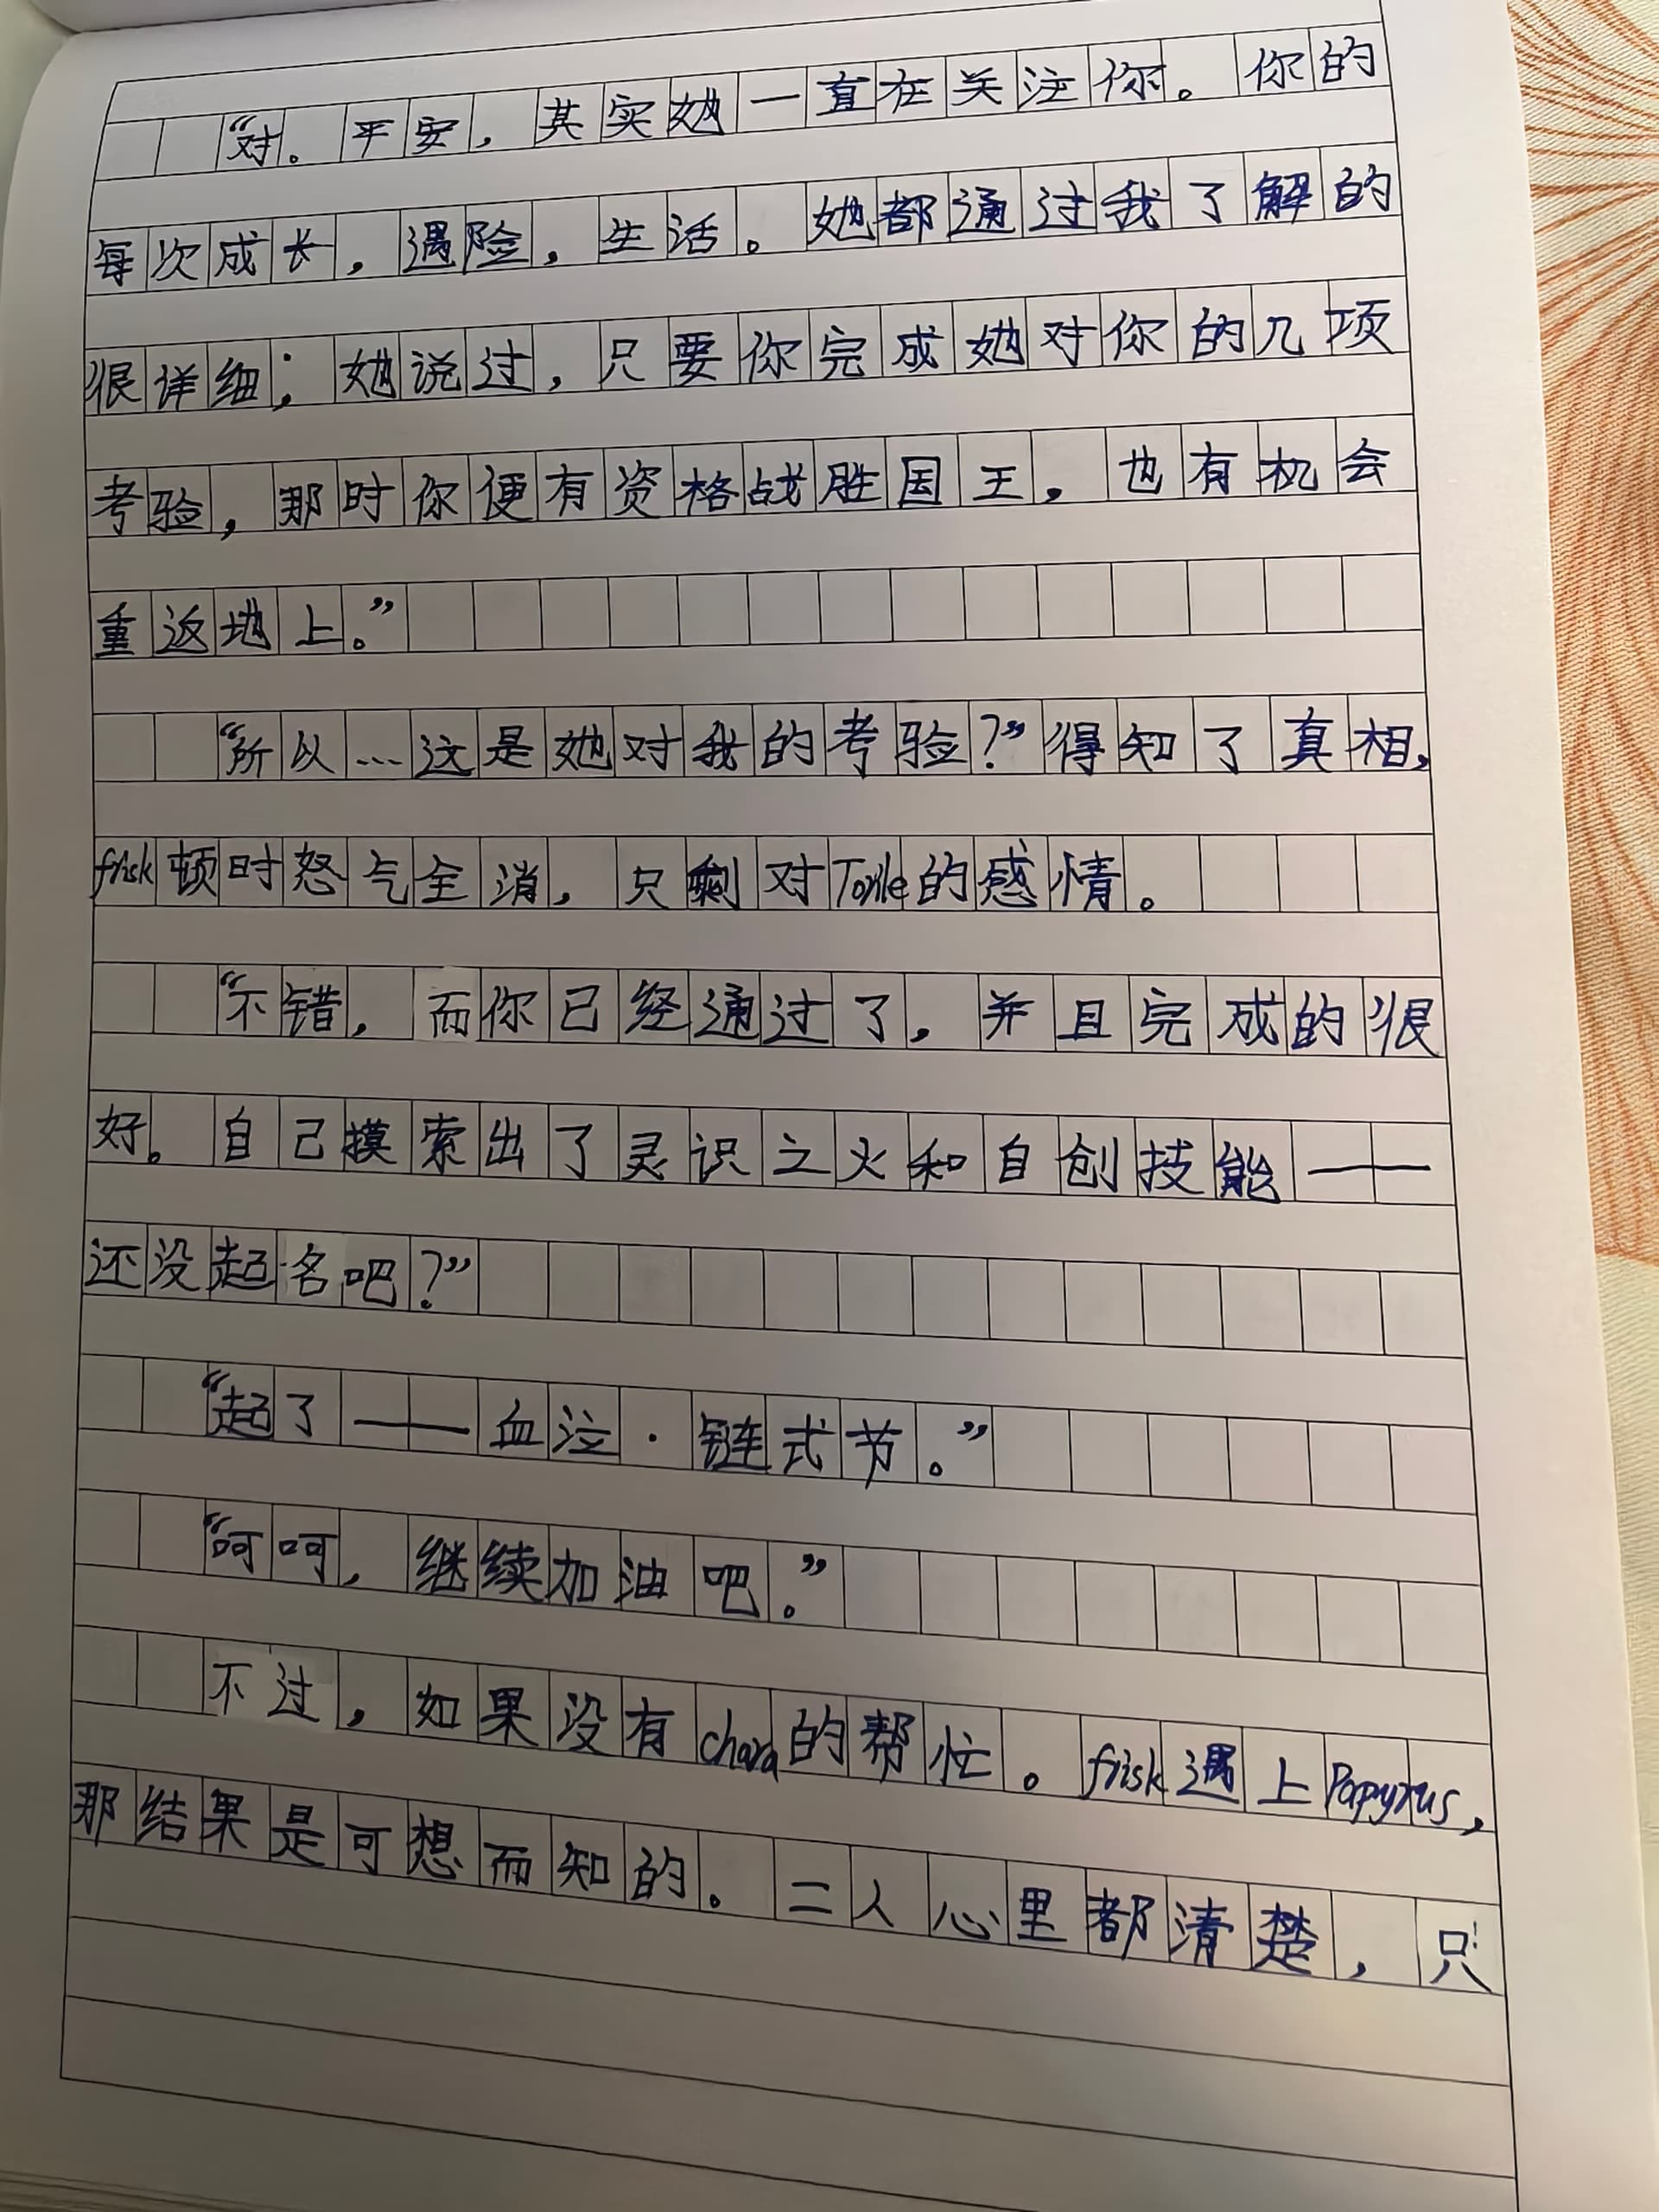 “对。平安，其实她一直在关注你。你的
每次成长，遇险，生活。她都通过我了解的
很详细；她说过，只要你完成她对你的几项
考验，那时你便有资格战胜国王，也有机会
重返地上。”
“所以…这是她对我的考验？”得知了真相，
frisk顿时怒气全消，只剩对Torile的感情。
“不错，而你已经通过了，并且完成的很
好。自己摸索出了灵识之火和自创技能——
还没起名吧？”
“起了——血泣·链式节。”
“呵呵，继续加油吧。”
不过，如果没有chara的帮忙。frisk遇上Papyrus，
那结果是可想而知的。二人心里都清楚，只